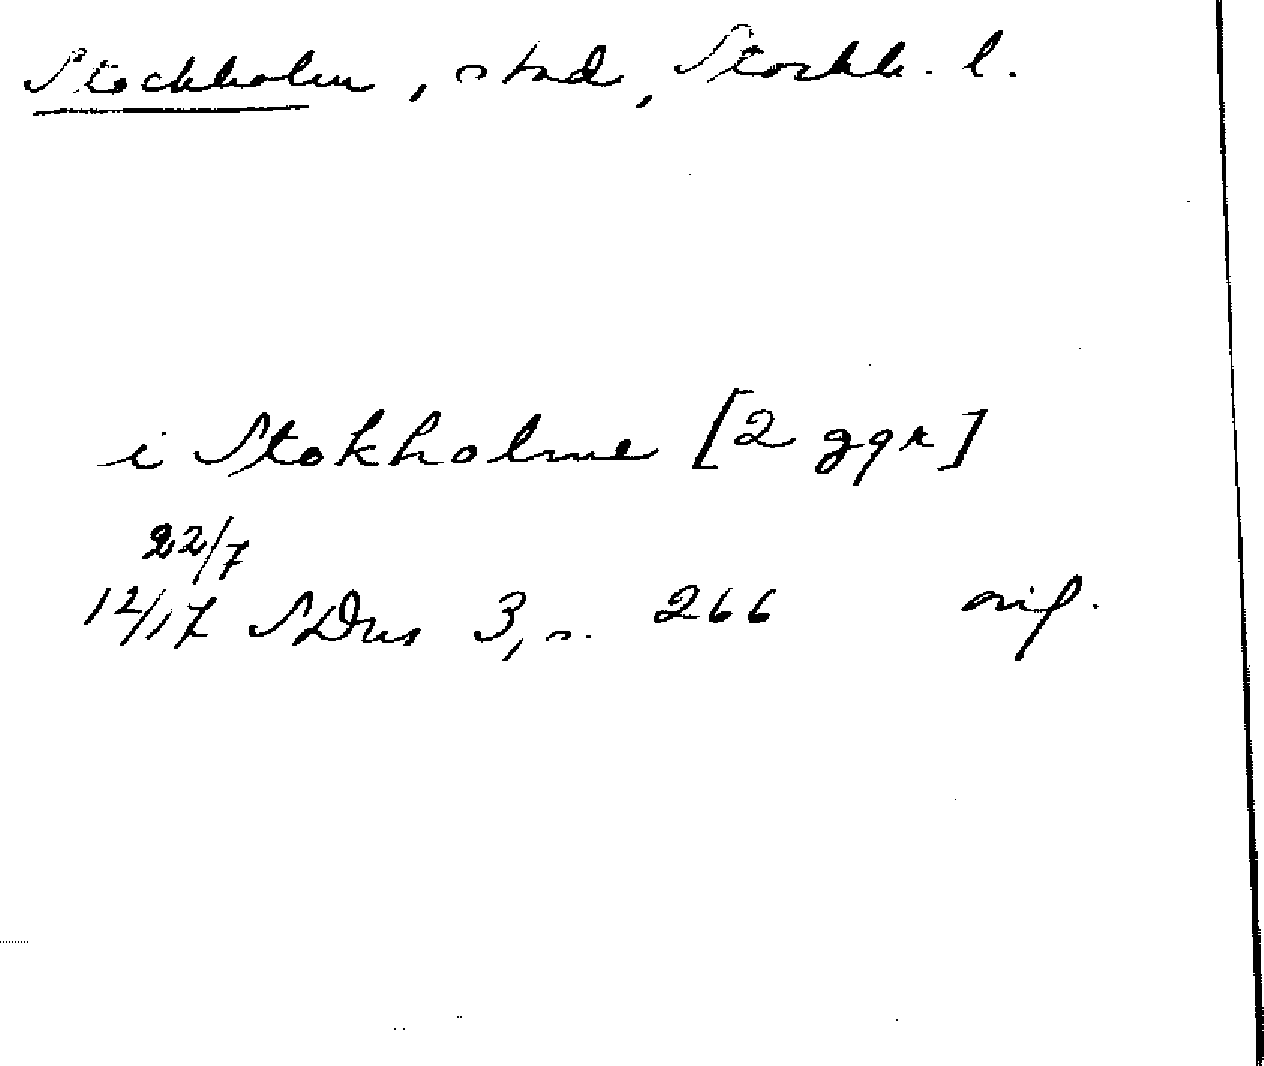 Stockholm, stad, Stockh. l.
i Stokholme [2 ggr]
22/7
1417 SDns 3, s. 266 orig.